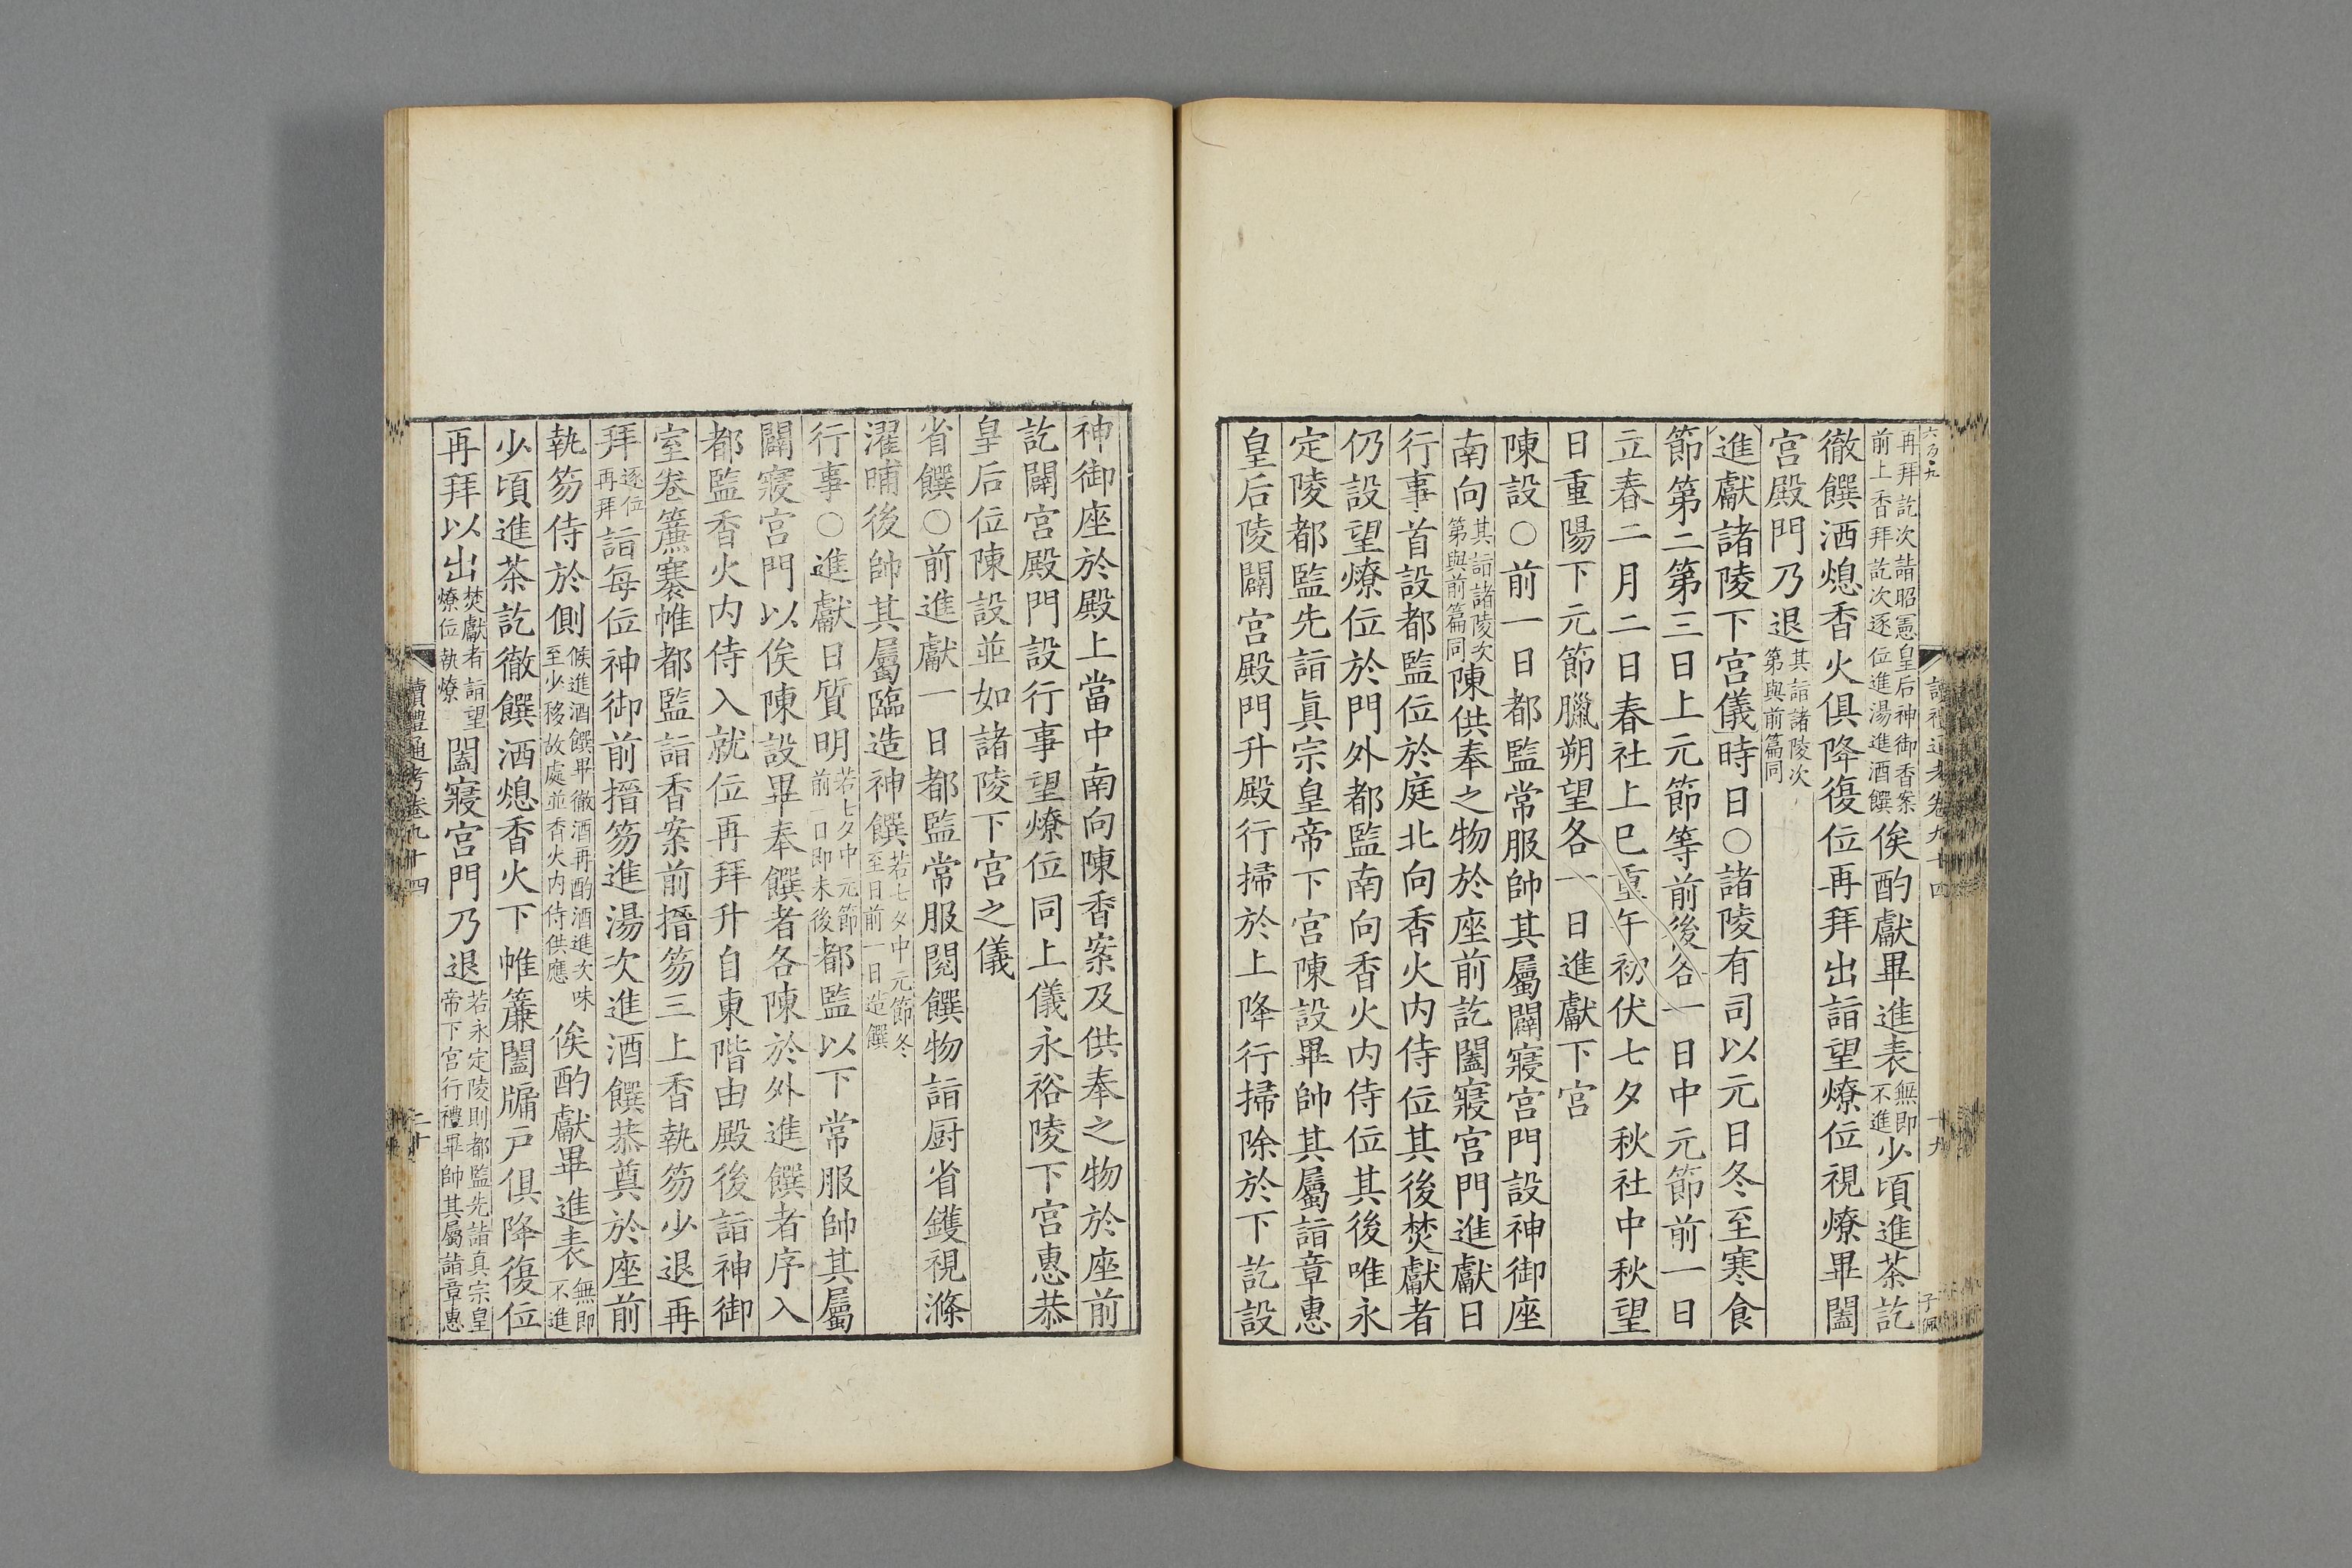 再拜訖次詣昭憲皇后神御香案前上香拜訖次逐位進湯進酒饌俟酌獻畢進表無即不進少頃進茶訖
徹饌酒熄香火俱降復位再拜出詣望燎位視燎畢闔
宮殿門乃退其詣諸陵次第與前篇同
進獻諸陵下宮儀時日○諸陵有司以元日冬至寒食
節第二第三日上元節等前後各一日中元節前一日
立春二月二日春社上巳重午初伏七夕秋社中秋望
日重陽下元節臘朔望各一日進獻下宮
陳設○前一日都監常服帥其屬闢寢宮門設神御座
南向其詣諸陵次第與前篇同陳供奉之物於座前訖闔寢宮門進獻日
行事首設都監位於庭北向香火內侍位其後焚獻者
仍設望燎位於門外都監南向香火內侍位其後唯永
定陵都監先詣眞宗皇帝下宮陳設畢帥其屬詣章惠
皇后陵闢宮殿門升殿行掃於上降行掃除於下訖設
神御座於殿上當中南向陳香案及供奉之物於座前
訖闢宮殿門設行事望燎位同上儀永裕陵下宮惠恭
皇后位陳設並如諸陵下宮之儀
省饌○前進獻一日都監常服閱饌物詣厨省鑊視滌
濯晡後帥其屬臨造神饌若七夕中元節冬至日前一日造饌
行事○進獻日質明若七夕中元節前一日即未後都監以下常服帥其屬
闢寢宮門以俟陳設畢奉饌者各陳於外進饌者序入
都監香火內侍入就位再拜升自東階由殿後詣神御
室卷簾褰帷都監詣香案前搢笏三上香執笏少退再
拜逐位再拜詣每位神御前搢笏進湯次進酒饌恭奠於座前
執笏侍於側候進酒饌畢徹酒再酌酒進次味至少移故處並香火內侍供應俟酌獻畢進表無即不進
少頃進茶訖徹饌酒熄香火下帷簾闔牖戸俱降復位
再拜以出焚獻者詣望燎位執燎闔寢宮門乃退若永定陵則都監先詣真宗皇帝下宮行禮畢帥其屬詣章惠
讀禮通考卷九十四
二十